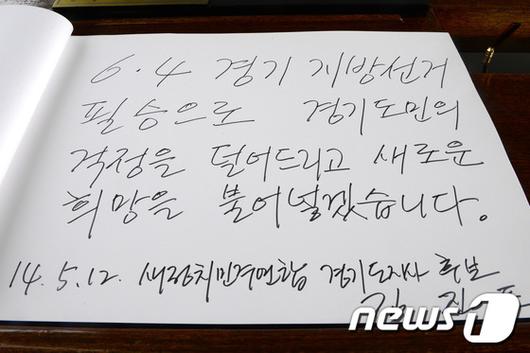 6.4 경기 지방선거
필승으로 경기도민의
걱정을 덜어드리고 새로운
희망을 불어넣겠습니다.
14.5.12. 새정치민주연합 경기도지사 후보
김진
news1